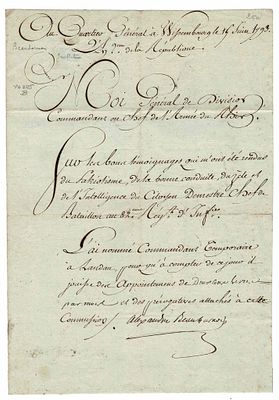 Du Quartier Général à Wissembourg le 15 Juin 1793.
L'an 2ème de la République
Moi Général de Division
Commandant en Chef de l'Armée du Rhin
Sur les bons témoignages qui m'ont été rendus
du patriotisme, de la bonne conduite, du zèle et
de l'Intelligence du Citoyen Demestre Chef de
Bataillon au Régt. d'Inf.rie
L'ai nommé Commandant Temporaire
à Landau pour qu'à compter de ce jour il
jouisse des Appointemens de
par mois et des prérogatives attachés à cette
Commission. Alexandre Beauharnois